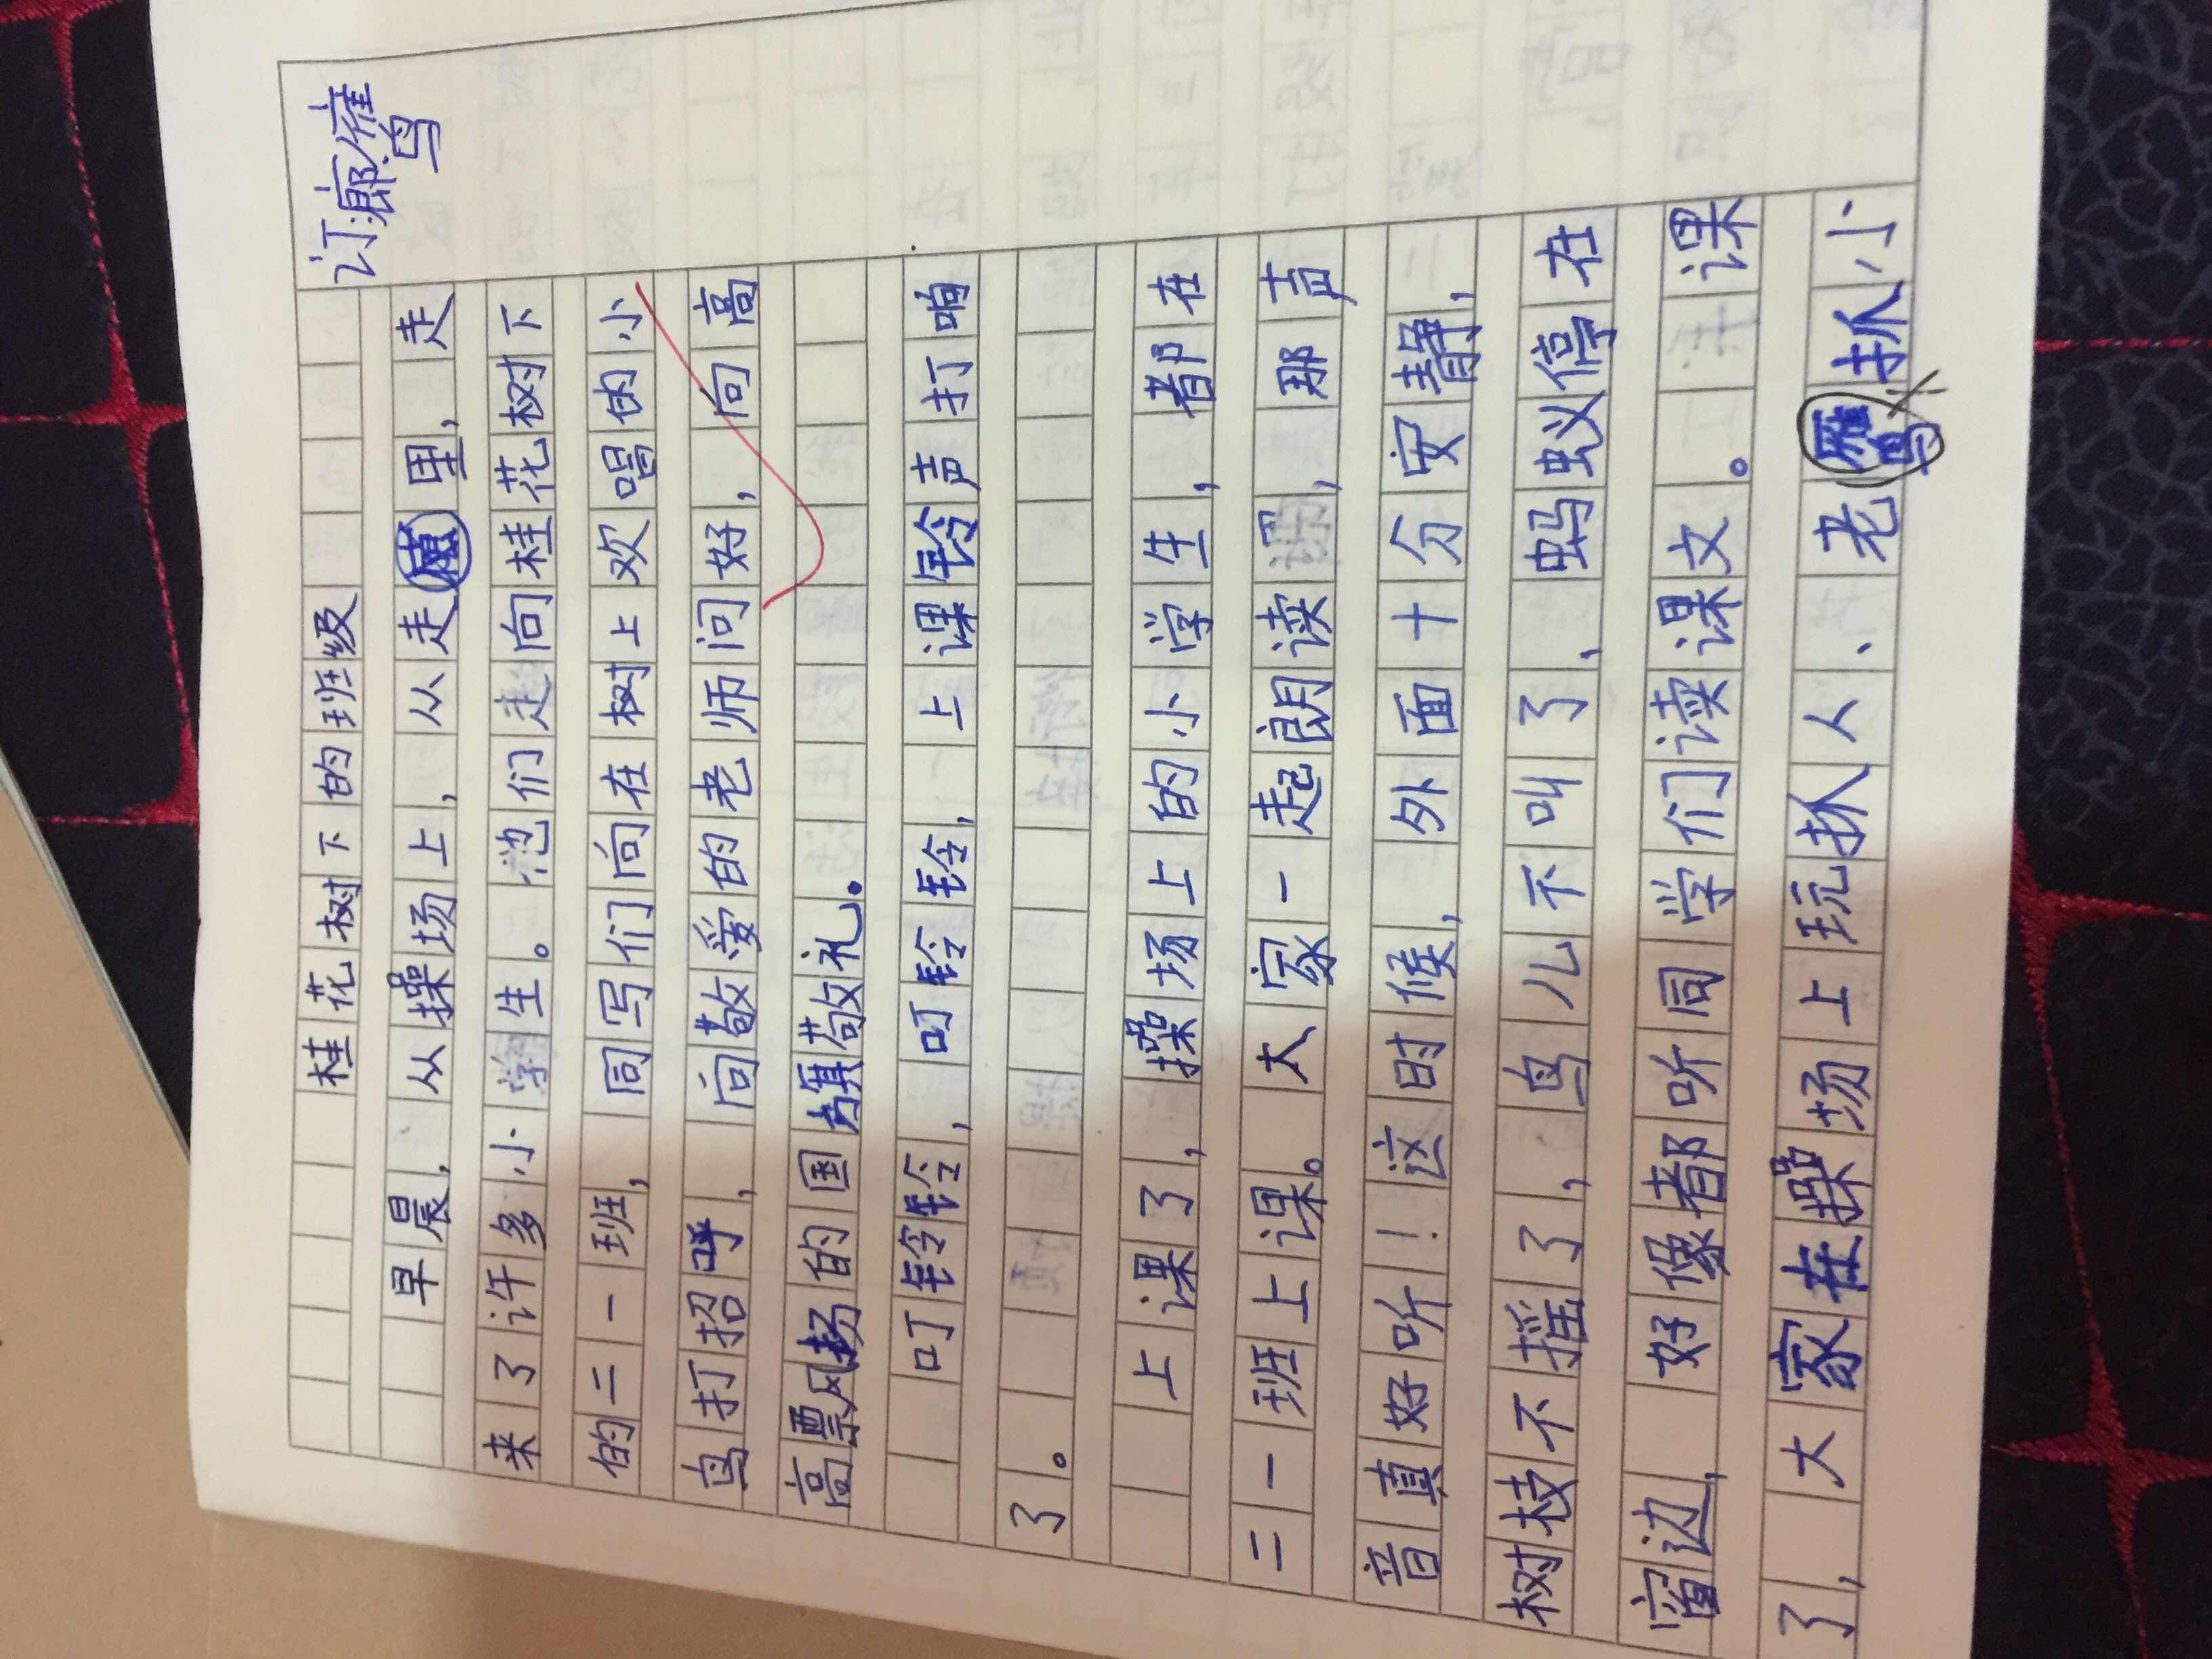 订廊鹰
桂花树下的班级
早晨,从操场上,从走里,走
来了许多小学生。他们走向桂花树下
的二一班,同写们向在树上欢唱的小
鸟打招呼,向敬爱的老师问好,向高
高票风扬的国旗敬礼。
叮铃铃,叮铃铃,上课铃声打响
了。
上课了,操场上的小学生,都在
二一班上课。大家一起朗读,那声
音真好听!这时候,外面十分安静,
树枝不摇了,鸟儿不叫了,蚂蚁停在
窗边,好像都听同学们读课文。课
了,大家在操场上玩抓人、老抓小